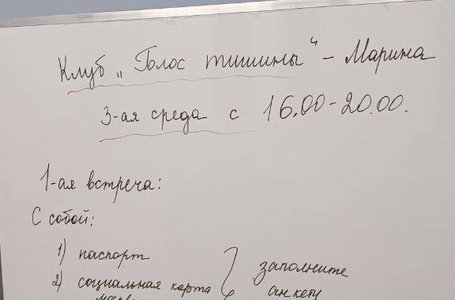 Клуб „Голос тишины“ – Марина
3-ая среда с 16.00-20.00.
1-ая встреча:
С собой:
1) паспорт
2) социальная карта
заполните
анкету